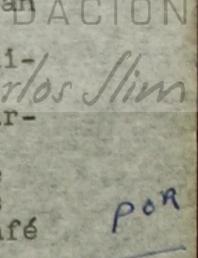 an
DACIÓN
i-
rlos Slim
ar-
afé
POR